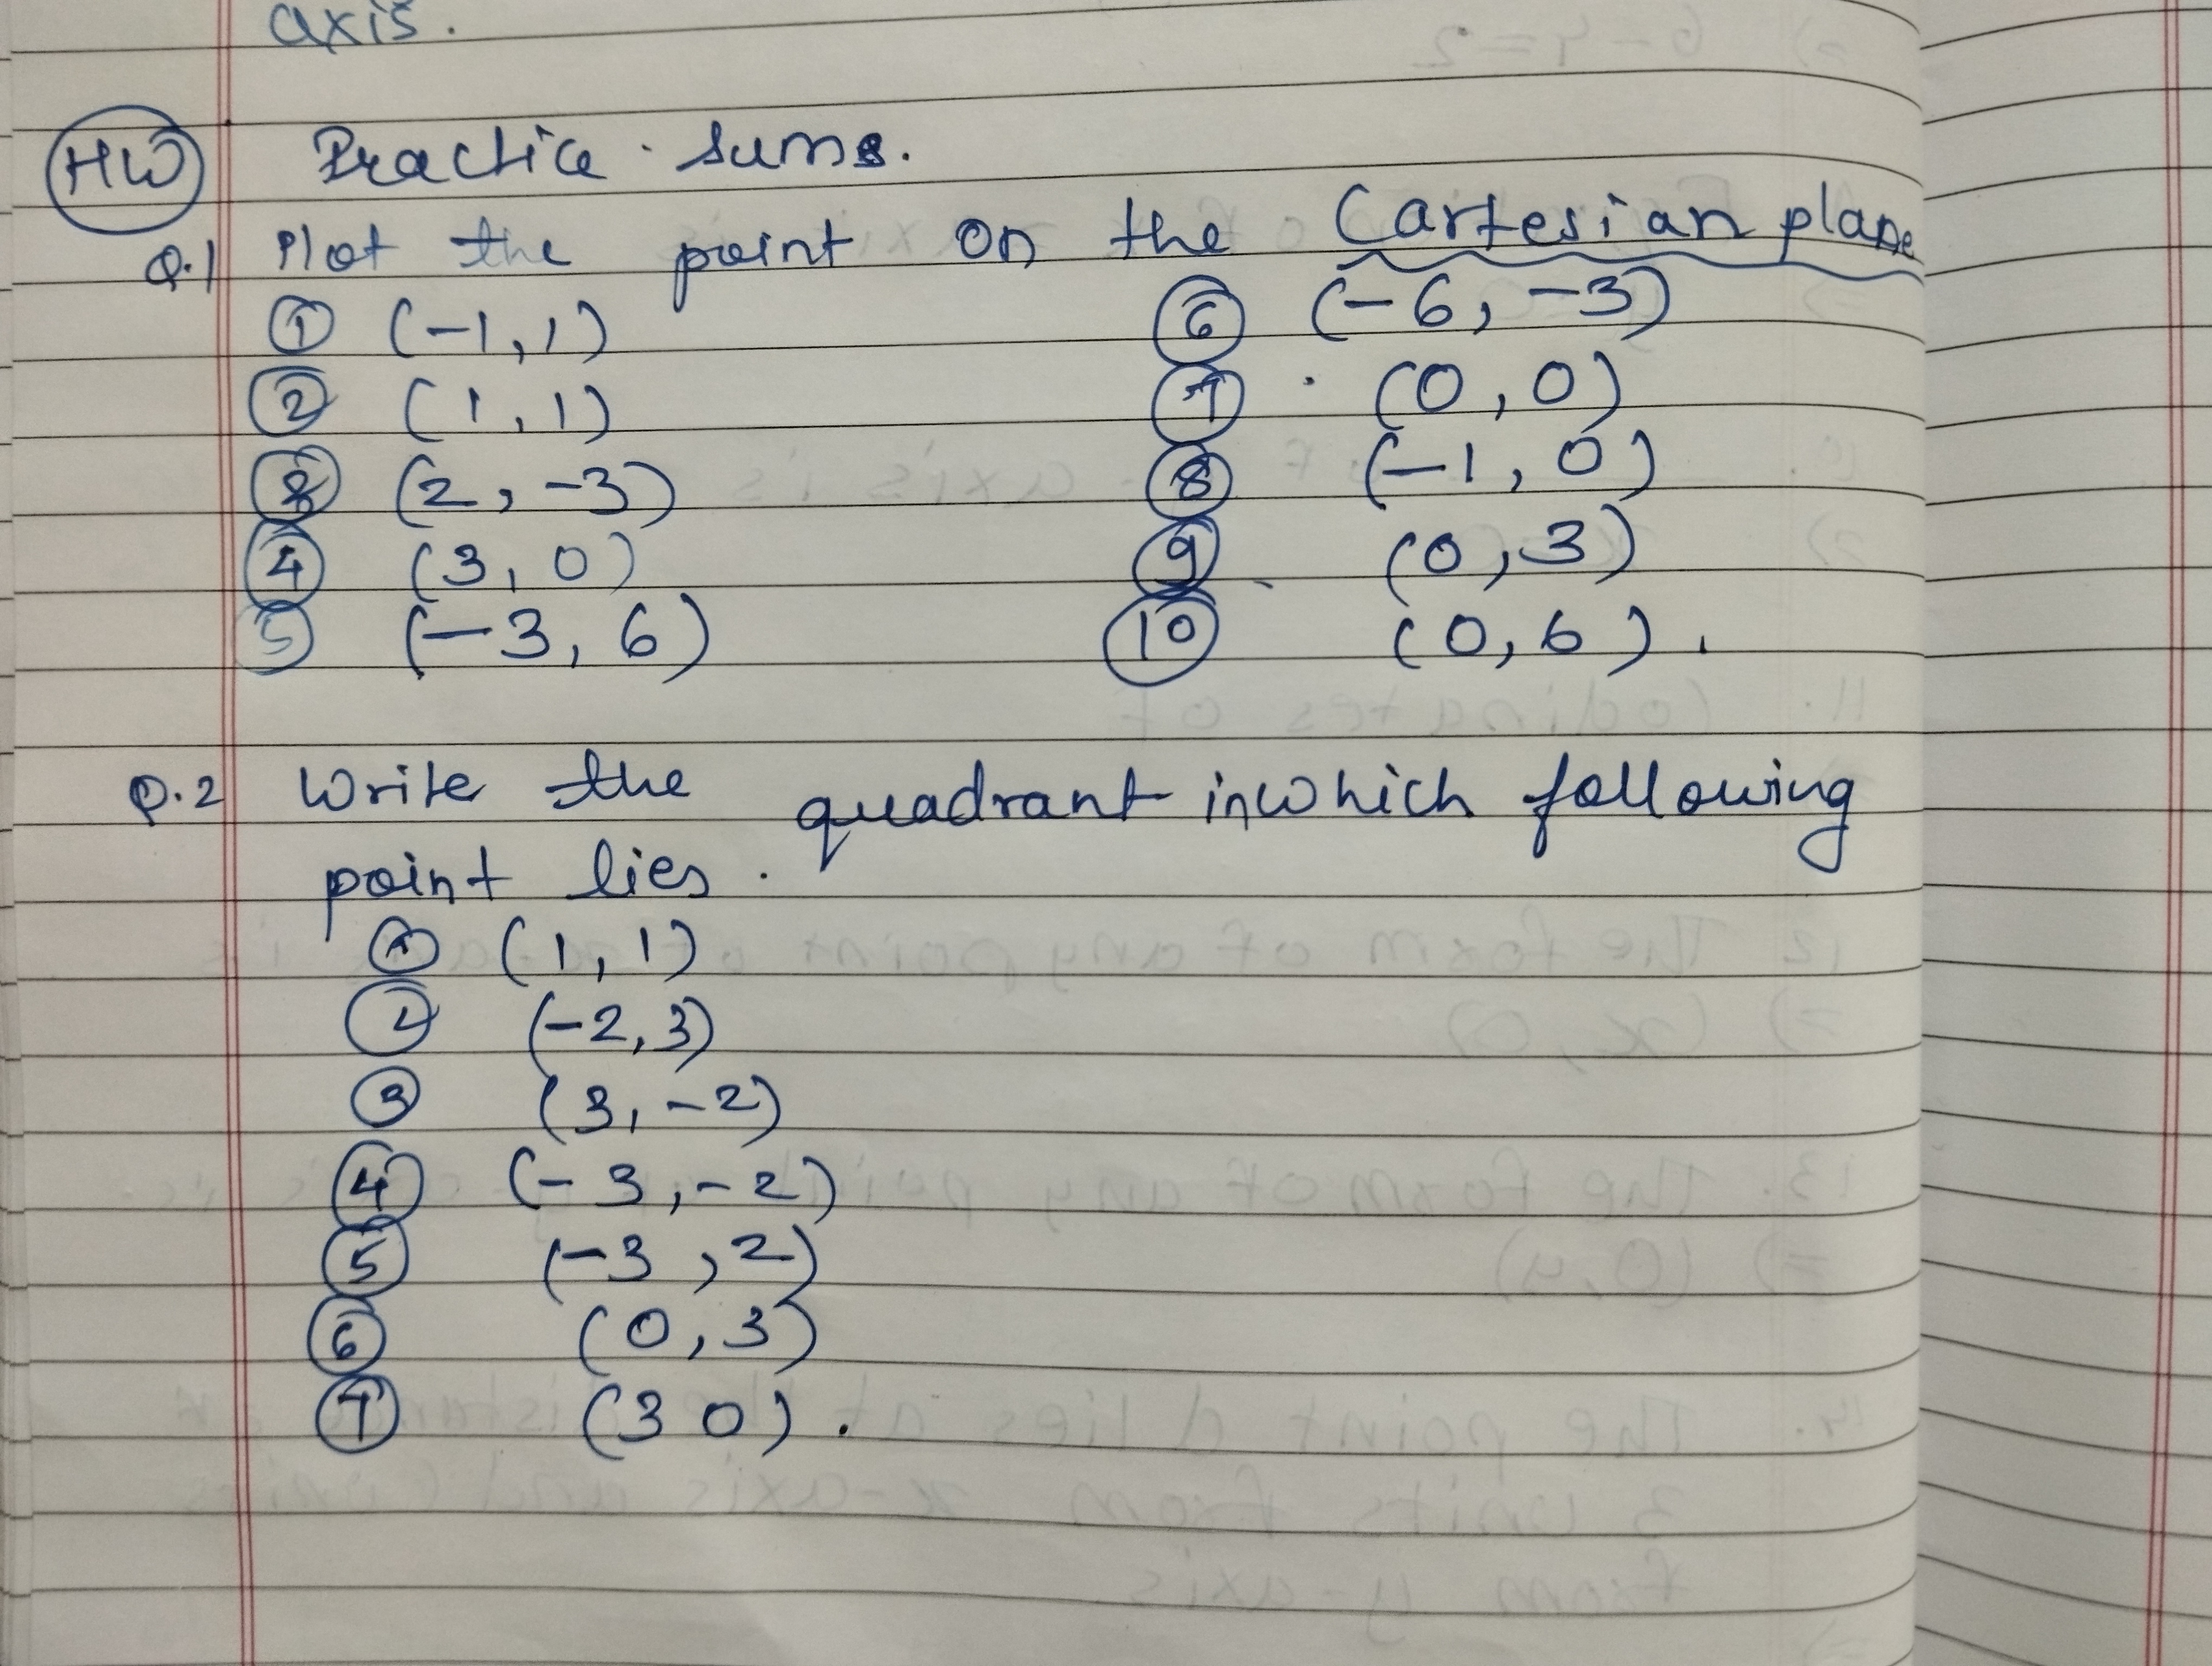 axis.
HW Practice sums.
Q.1 Plot the point on the Cartesian plane
① (-1,1) ⑥ (-6, -3)
② (1,1) ⑦ (0,0)
③ (2, -3) ⑧ (-1, 0)
④ (3, 0) ⑨ (0,3)
⑤ (-3, 6) ⑩ (0,6).
Q.2 Write the quadrant inwhich following
point lies.
① (1, 1)
② (-2,3)
③ (3, -2)
④ (-3, -2)
⑤ (-3, 2)
⑥ (0, 3)
⑦ (3 0).